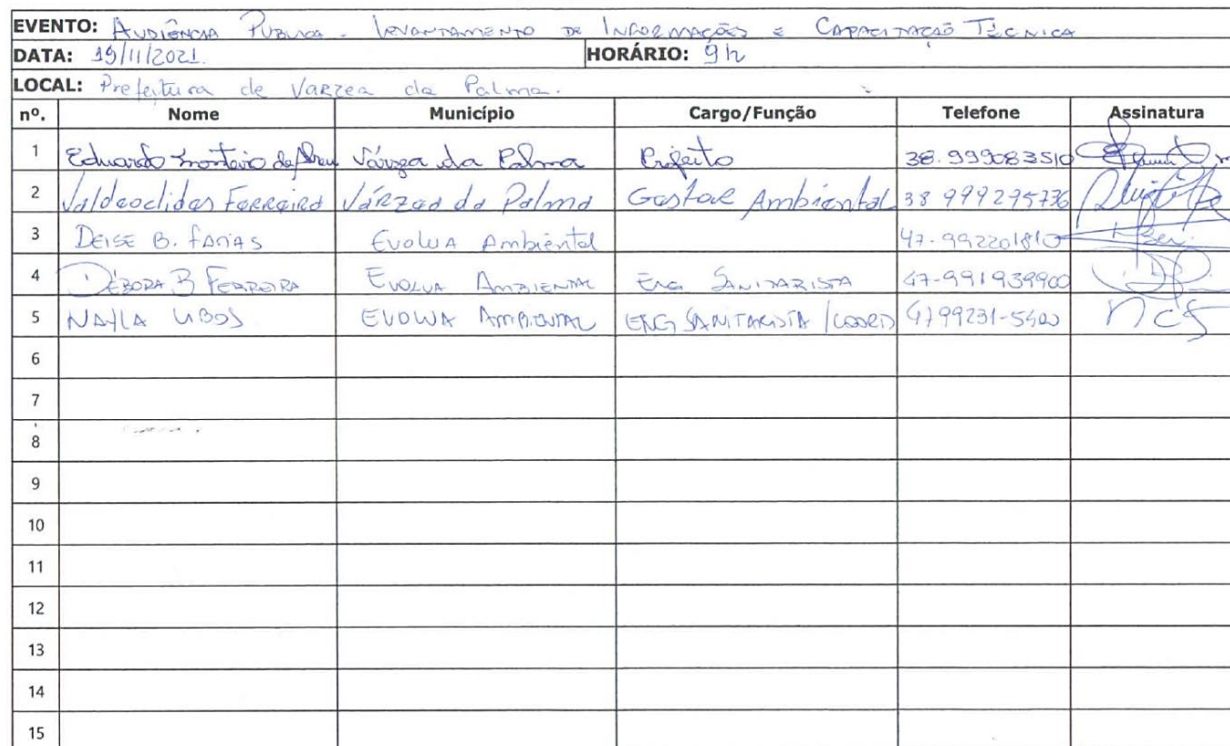 EVENTO: AUDIÊNCIA PÚBLICA - LEVANTAMENTO DE INFORMAÇÕES E CAPACITAÇÃO TÉCNICA
DATA: 19/11/2021. HORÁRIO: 9h
LOCAL: Prefeitura de Varzea da Palma.
nº. Nome Município Cargo/Função Telefone Assinatura
1 Eduardo Monteiro de Várzea da Palma Prefeito 38.999083510
2 Valdeoclides Ferreira Várzea da Palma Gestor Ambiental 38 999275776
3 DEISE B. FARIAS EVOLUA Ambiental 47-992201810
4 DÉBORA B FERREIRA EVOLUA AMBIENTAL ENG. SANITARISTA 47-991939900
5 NAYLA EVOLUA AMBIENTAL ENG SANITARISTA /COORD
6
7
8
9
10
11
12
13
14
15